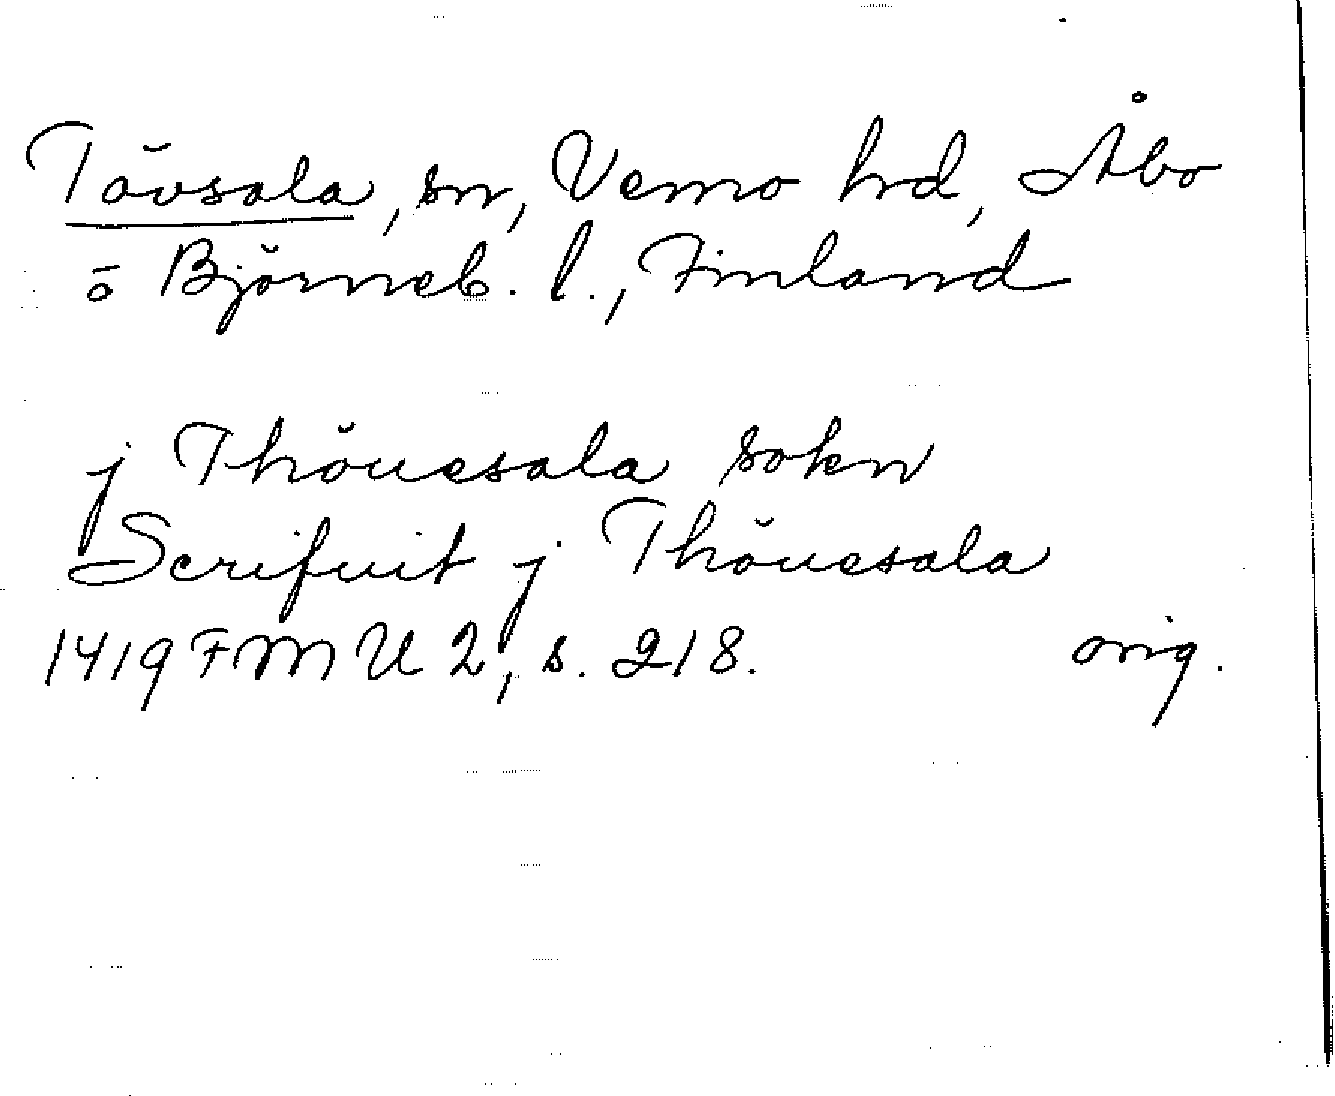 Tövsala, sn, Vemo hd, Åbo
o Björneb. l., Finland
j Thöuesala sokn
Scrifuit j Thöuesala
1419 FMU 2, s. 218. orig.